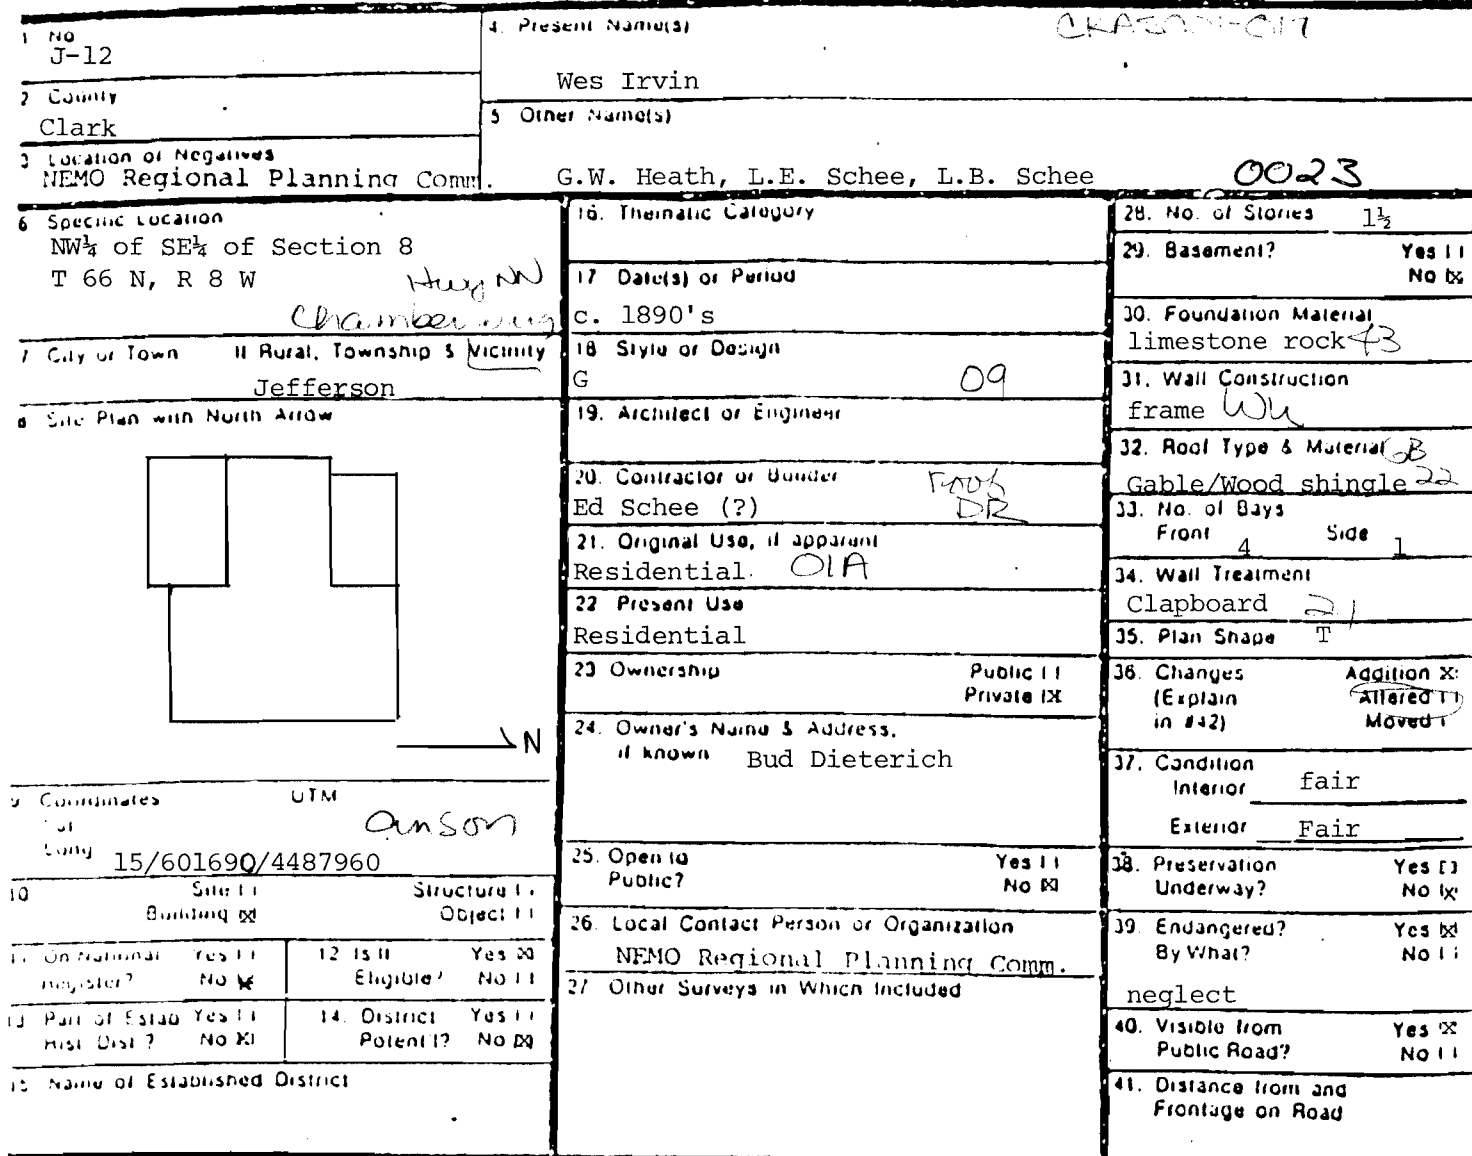 1 No
J-12
2 County
Clark
3 Location of Negatives
NEMO Regional Planning Comm.
4. Present Name(s)
Wes Irvin
5 Other Name(s)
G.W. Heath, L.E. Schee, L.B. Schee
0023
6 Specific Location
NW¼ of SE¼ of Section 8
T 66 N, R 8 W
Hwy NN
7 City or Town If Rural, Township & Vicinity
Jefferson
8 Site Plan with North Arrow
N
9 Coordinates UTM
Lat
Long
anson
15/601690/4487960
10 Site [ ] Structure [ ]
Building [X] Object [ ]
11 On National Register? Yes [ ] No [X]
12 Is It Eligible? Yes [X] No [ ]
13 Part of Estab Hist. Dist.? Yes [ ] No [X]
14. District Potent'l? Yes [ ] No [X]
15 Name of Established District
16. Thematic Category
17 Date(s) or Period
c. 1890's
18 Style or Design
G 09
19. Architect or Engineer
20. Contractor or Builder
Ed Schee (?)
roof
DR
21. Original Use, if apparent
Residential 01A
22 Present Use
Residential
23 Ownership Public [ ]
Private [X]
24. Owner's Name & Address,
if known Bud Dieterich
25. Open to Public? Yes [ ]
No [X]
26. Local Contact Person or Organization
NEMO Regional Planning Comm.
27 Other Surveys in Which Included
28. No. of Stories 1½
29. Basement? Yes [ ]
No [X]
30. Foundation Material
limestone rock 43
31. Wall Construction
frame
32. Roof Type & Material GB
Gable/Wood shingle 22
33. No. of Bays
Front 4 Side 1
34. Wall Treatment
Clapboard 21
35. Plan Shape T
36. Changes Addition [X]
(Explain Altered [ ]
in #42) Moved [ ]
37. Condition
Interior fair
Exterior Fair
38. Preservation Yes [ ]
Underway? No [X]
39. Endangered? Yes [X]
By What? No [ ]
neglect
40. Visible from Yes [X]
Public Road? No [ ]
41. Distance from and
Frontage on Road